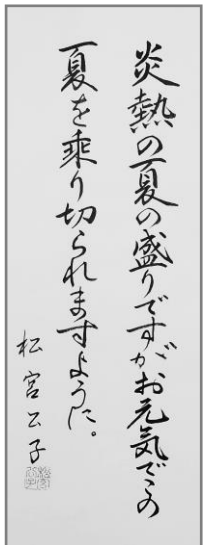 炎熱の夏の盛りですがお元気でこの
夏を乗り切られますように。
松宮公子